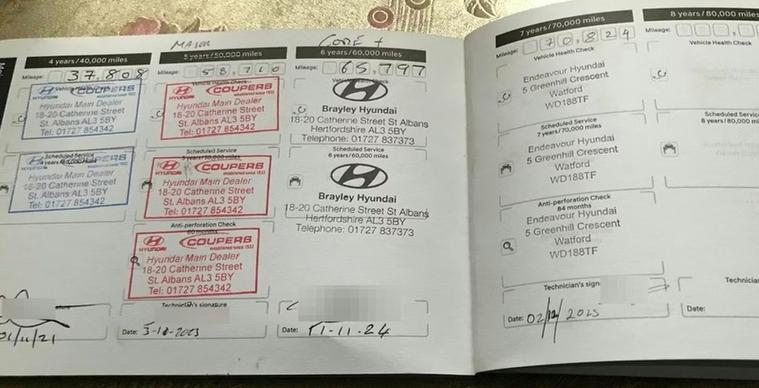 MAJOR
CODE +
4 years/40,000 miles
Mileage: 37,808
HYUNDAI COUPERS
Hyundai Main Dealer
18-20 Catherine Street
St. Albans AL3 5BY
Tel: 01727 854342
HYUNDAI COUPERS
Hyundai Main Dealer
18-20 Catherine Street
St. Albans AL3 5BY
Tel: 01727 854342
5 years/50,000 miles
Mileage: 58,710
Vehicle Health Check
HYUNDAI COUPERS
established since 1932
Hyundai Main Dealer
18-20 Catherine Street
St. Albans AL3 5BY
Tel: 01727 854342
Scheduled Service
HYUNDAI COUPERS
Hyundai Main Dealer
18-20 Catherine Street
St. Albans AL3 5BY
Tel: 01727 854342
Anti-perforation Check
HYUNDAI COUPERS
Hyundai Main Dealer
18-20 Catherine Street
St. Albans AL3 5BY
Tel: 01727 854342
Technician's signature
Date: 3-10-2023
6 years/60,000 miles
Mileage: 65,797
Brayley Hyundai
18-20 Catherine Street St Albans
Hertfordshire AL3 5BY
Telephone: 01727 837373
Scheduled Service
6 years/60,000 miles
Brayley Hyundai
18-20 Catherine Street St Albans
Hertfordshire AL3 5BY
Telephone: 01727 837373
Date: 11-11-24
7 years/70,000 miles
Mileage: 70,824
Vehicle Health Check
Endeavour Hyundai
5 Greenhill Crescent
Watford
WD188TF
Scheduled Service
7 years/70,000 miles
Endeavour Hyundai
5 Greenhill Crescent
Watford
WD188TF
Anti-perforation Check
84 months
Endeavour Hyundai
5 Greenhill Crescent
Watford
WD188TF
Technician's sign
Date: 02/12/2025
8 years/80,000 miles
Mileage:
Vehicle Health Check
Scheduled Service
8 years/80,000 mi
Technician
Date: